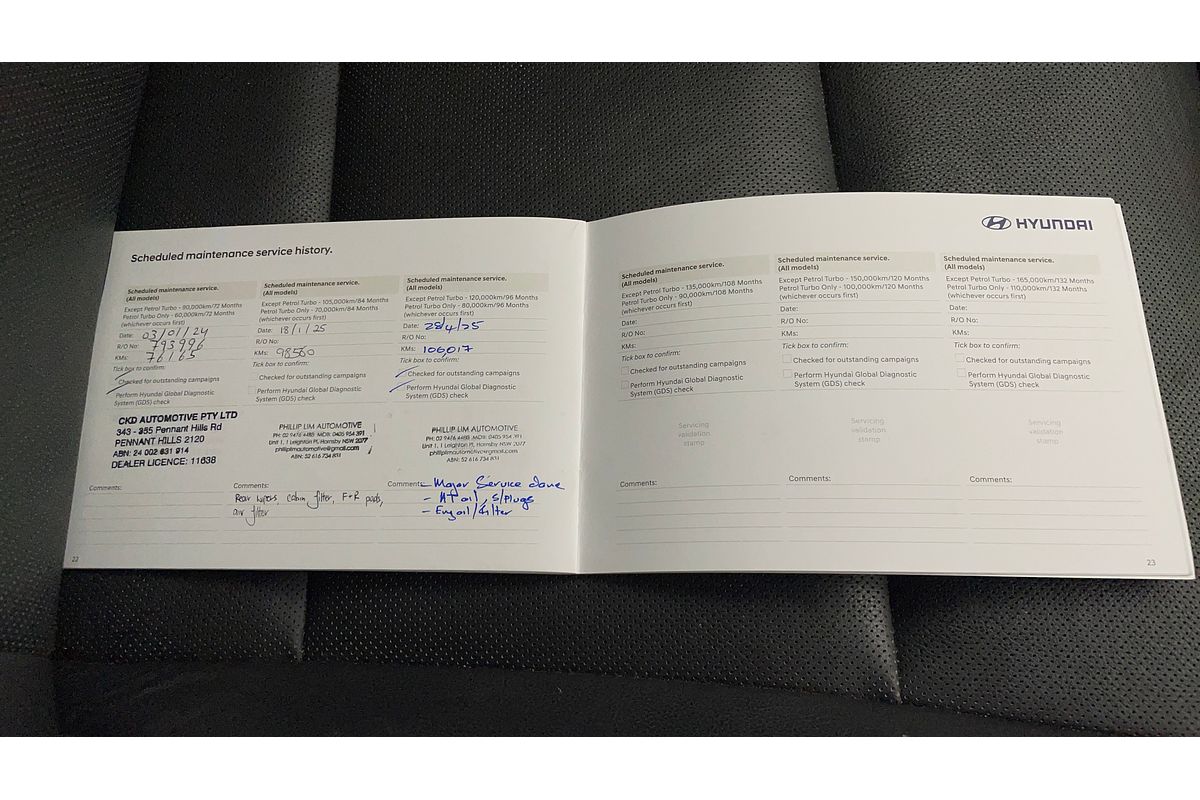 Scheduled maintenance service history.
Scheduled maintenance service.
(All models)
Except Petrol Turbo - 90,000km/72 Months
Petrol Turbo Only - 60,000km/72 Months
(whichever occurs first)
Date: 03/01/24
R/O No: 793996
KMs: 76165
Tick box to confirm:
Checked for outstanding campaigns
Perform Hyundai Global Diagnostic
System (GDS) check
CKD AUTOMOTIVE PTY LTD
343 - 355 Pennant Hills Rd
PENNANT HILLS 2120
ABN: 24 002 631 914
DEALER LICENCE: 11638
Comments:
22
Scheduled maintenance service.
(All models)
Except Petrol Turbo - 105,000km/84 Months
Petrol Turbo Only - 70,000km/84 Months
(whichever occurs first)
Date: 18/1/25
R/O No:
KMs: 98560
Tick box to confirm:
Checked for outstanding campaigns
Perform Hyundai Global Diagnostic
System (GDS) check
PHILLIP LIM AUTOMOTIVE
PH: 02 9476 4485 MOB: 0405 934 391
Unit 1, 1 Leighton Pl, Hornsby NSW 2077
philliplimautomotive@gmail.com
ABN: 52 616 734 831
Comments:
Rear wipers, cabin filter, F+R pads,
air filter
Scheduled maintenance service.
(All models)
Except Petrol Turbo - 120,000km/96 Months
Petrol Turbo Only - 80,000km/96 Months
(whichever occurs first)
Date: 28/4/25
R/O No:
KMs: 106,017
Tick box to confirm:
Checked for outstanding campaigns
Perform Hyundai Global Diagnostic
System (GDS) check
PHILLIP LIM AUTOMOTIVE
Unit 1, 1 Leighton Pl, Hornsby NSW 2077
philliplimautomotive@gmail.com
ABN: 52 616 734 831
Comments: - Major Service done
- AT oil, s/plugs
- Eng oil/filter
HYUNDAI
Scheduled maintenance service.
(All models)
Except Petrol Turbo - 135,000km/108 Months
Petrol Turbo Only - 90,000km/108 Months
(whichever occurs first)
Date:
R/O No:
KMs:
Tick box to confirm:
Checked for outstanding campaigns
Perform Hyundai Global Diagnostic
System (GDS) check
Servicing
validation
stamp
Comments:
Scheduled maintenance service.
(All models)
Except Petrol Turbo - 150,000km/120 Months
Petrol Turbo Only - 100,000km/120 Months
(whichever occurs first)
Date:
R/O No:
KMs:
Tick box to confirm:
Checked for outstanding campaigns
Perform Hyundai Global Diagnostic
System (GDS) check
Servicing
validation
stamp
Comments:
Scheduled maintenance service.
(All models)
Except Petrol Turbo - 165,000km/132 Months
Petrol Turbo Only - 110,000km/132 Months
(whichever occurs first)
Date:
R/O No:
KMs:
Tick box to confirm:
Checked for outstanding campaigns
Perform Hyundai Global Diagnostic
System (GDS) check
Servicing
validation
stamp
Comments:
23